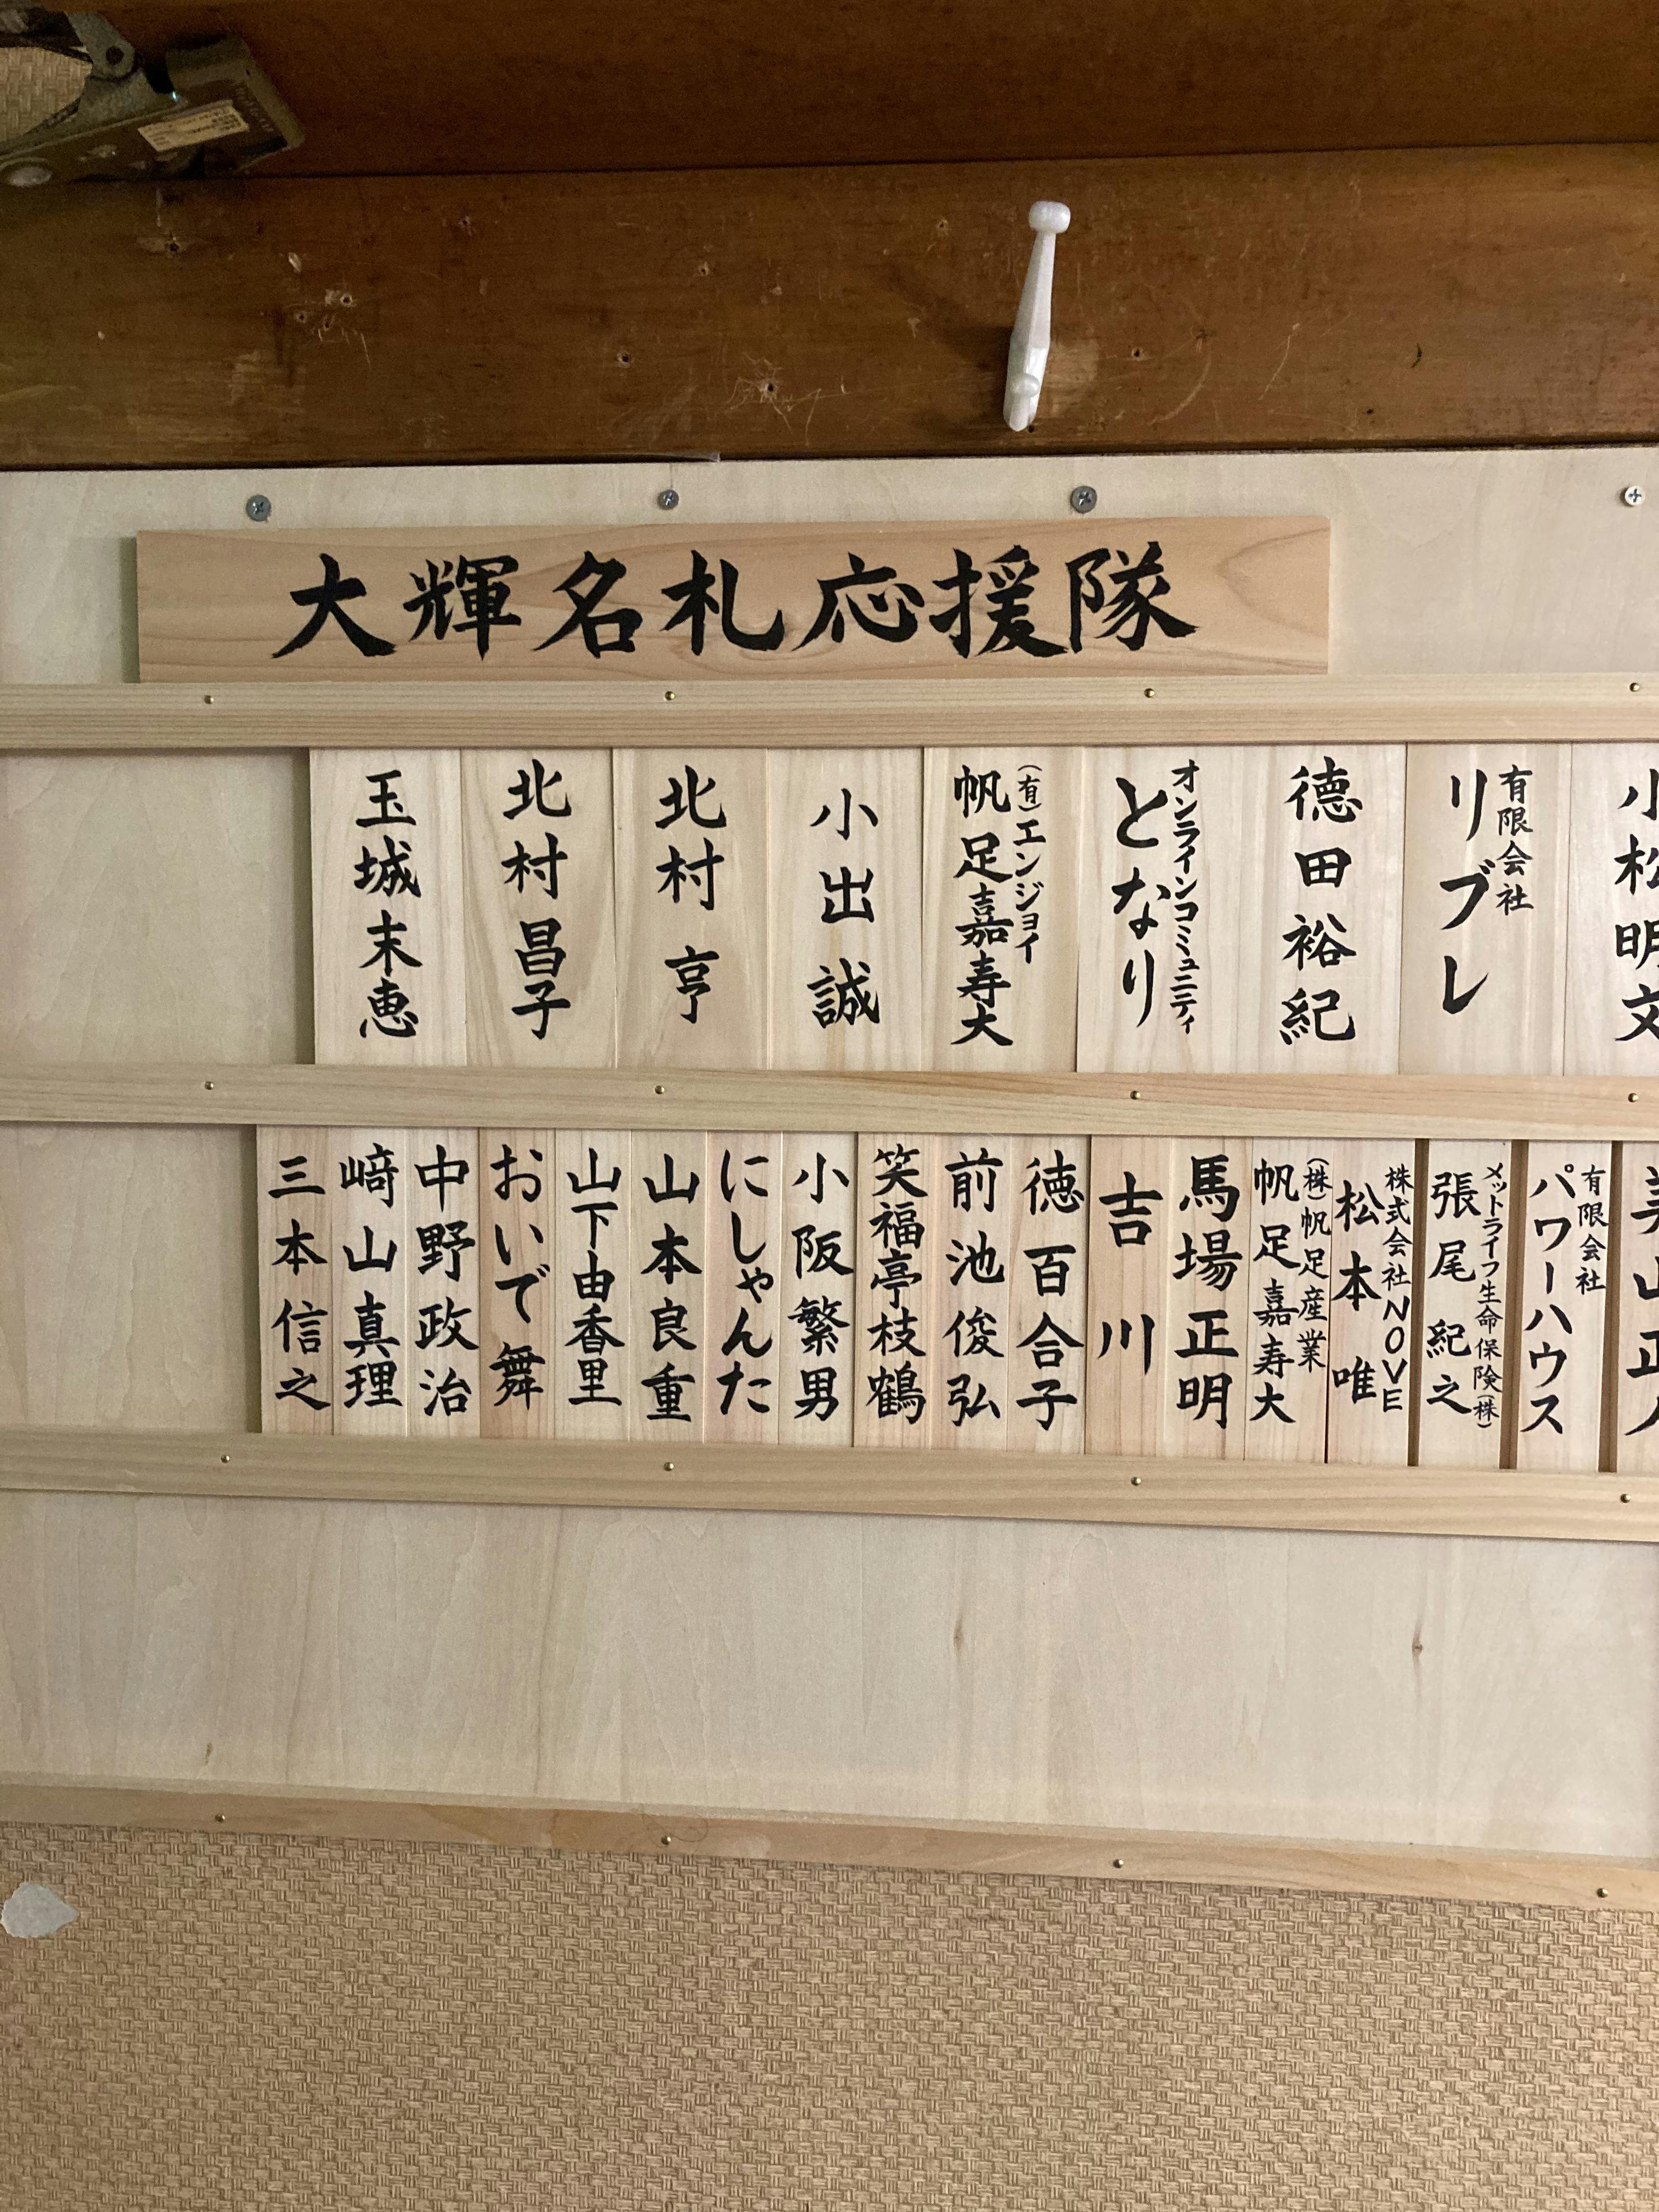 大輝名札応援隊
小松明文
有限会社
リブレ
徳田裕紀
オンラインコミュニティ
となり
(有)エンジョイ
帆足嘉寿大
小出誠
北村亨
北村昌子
玉城末恵
有限会社
パワーハウス
メットライフ生命保険(株)
張尾紀之
株式会社NOVE
松本唯
(株)帆足産業
帆足嘉寿大
馬場正明
吉川
徳百合子
前池俊弘
笑福亭枝鶴
小阪繁男
にしゃんた
山本良重
山下由香里
おいで舞
中野政治
﨑山真理
三本信之